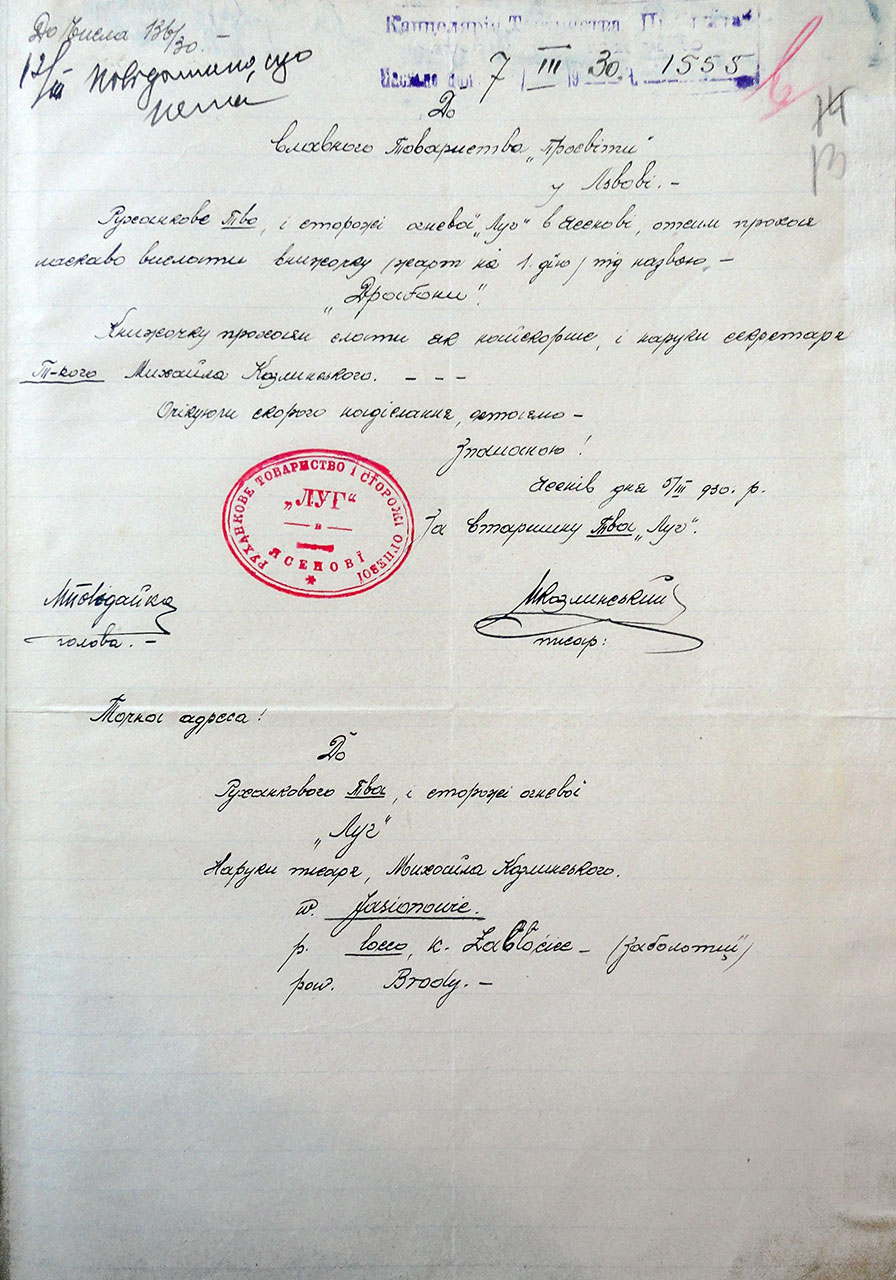 До Числа 136/30. –
12/III повідомлено, що
нема
Канцелярія Товариства "Просвіта"
7 III 1930 1555
До
Славного Товариства „Просвіти"
у Львові. –
Руханкове Тво, і сторожі огневої „Луг" в Ясенові, отсим просить
ласкаво вислати книжочку /жарт на 1. дію/ під назвою –
„Драбони".
Книжочку просим слати як найскорше, і наруки секретаря
Т-кого Михайла Козлинського. – – –
Очікуючи скорого надіслання, остаємо –
Зпошаною!
Ясенів дня 5/III 930. р.
За старшину Тва „Луг".
РУХАНКОВЕ ТОВАРИСТВО І СТОРОЖІ ОГНЕВОЇ
„ЛУГ"
в
ЯСЕНОВІ
МПовідайко
МКозлинський
голова. –
писар:
Точна адреса!
До
Руханкового Тва, і сторожі огневої
„Луг"
Наруки писаря, Михайла Козлинського.
w. Jasionowie.
p. loco, k. Zabłociec – (Заболотці)
pow. Brody. –